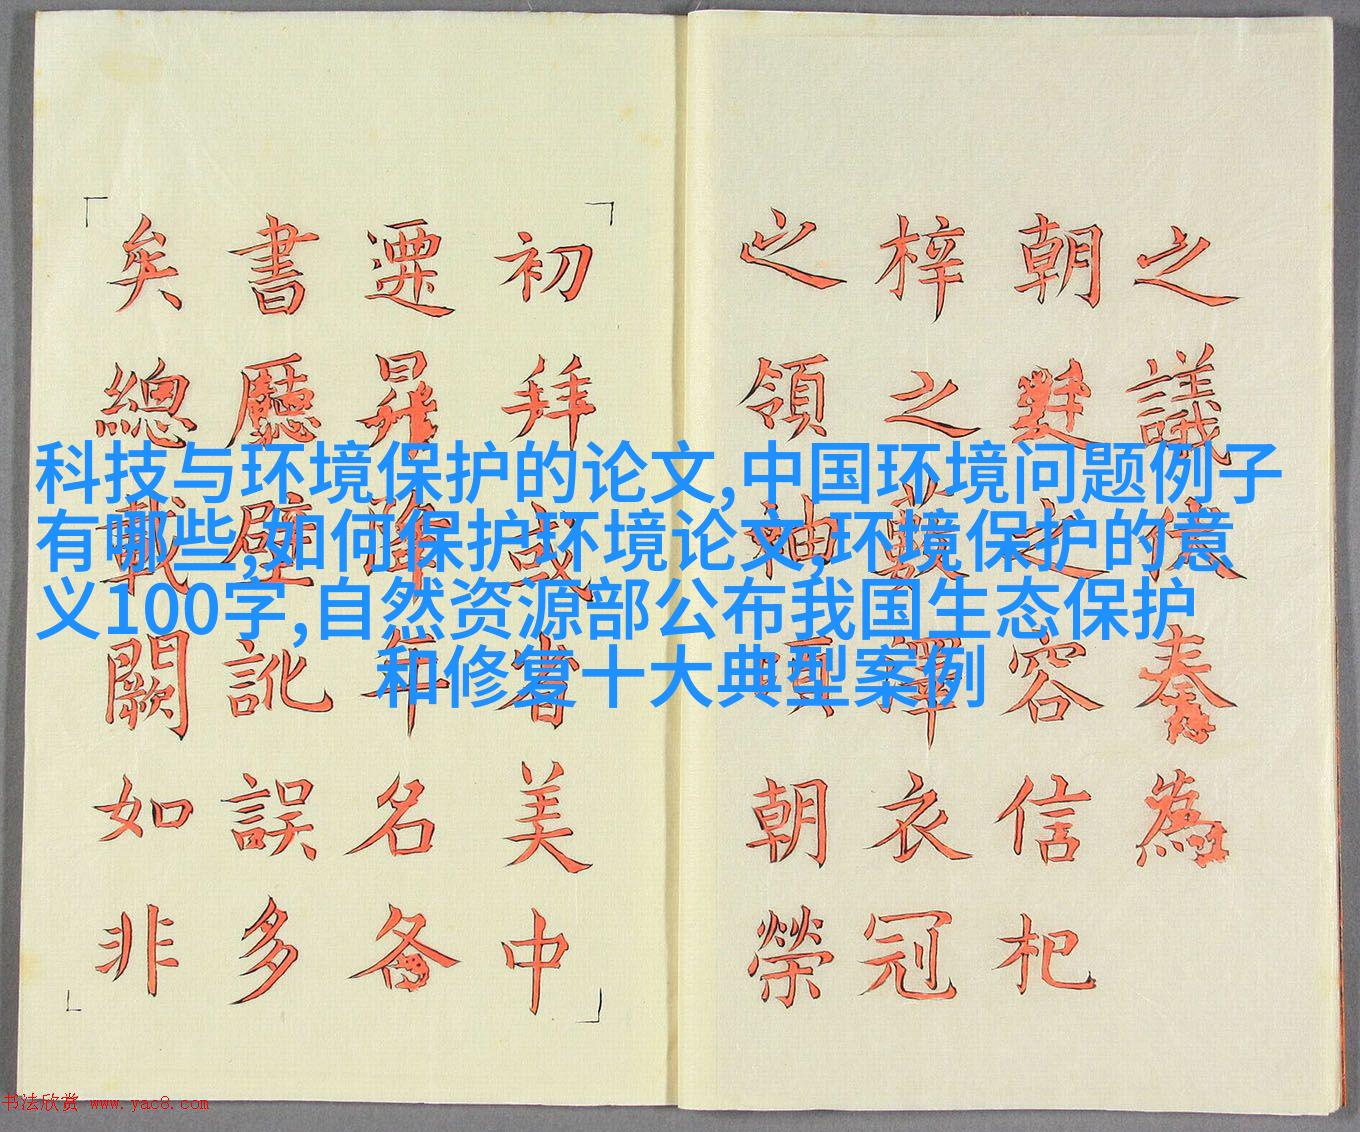 之議奏為
朝之容信杞
梓之衣冠
之領袖朝榮
初拜故者美中
遷年名
書廳壁訛誤多
矣總載闕如非
科技与环境保护的论文,中国环境问题例子
有哪些,如何保护环境论文,环境保护的意
义100字,自然资源部公布我国生态保护
和修复十大典型案例
书法欣赏 www.yac8.com